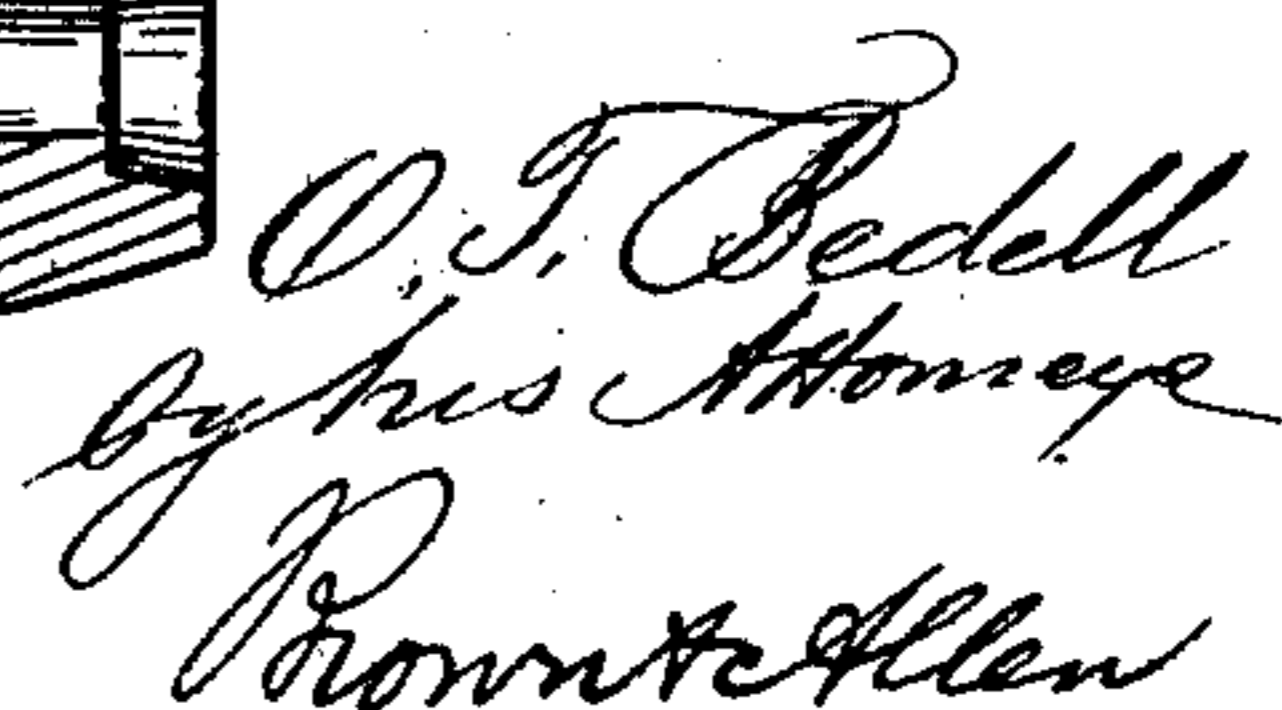 O. T. Bedell
by his Attorneys
Brown & Allen